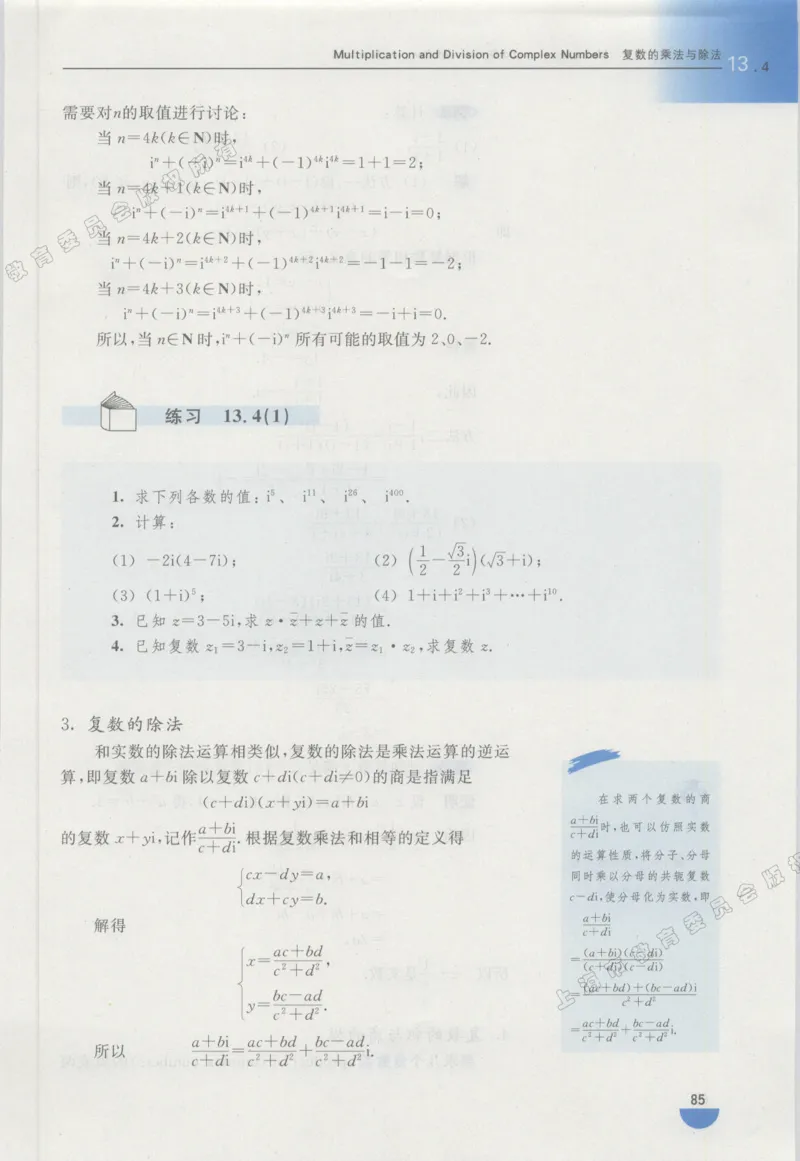 Multiplication and Division of Complex Numbers 复数的乘法与除法 13.4
需要对n的取值进行讨论:
当 n=4k(k∈N)时,
iⁿ+(-i)ⁿ=i⁴ᵏ+(-1)⁴ᵏi⁴ᵏ=1+1=2;
当 n=4k+1(k∈N)时,
iⁿ+(-i)ⁿ=i⁴ᵏ⁺¹+(-1)⁴ᵏ⁺¹i⁴ᵏ⁺¹=i-i=0;
当 n=4k+2(k∈N)时,
iⁿ+(-i)ⁿ=i⁴ᵏ⁺²+(-1)⁴ᵏ⁺²i⁴ᵏ⁺²=-1-1=-2;
当 n=4k+3(k∈N)时,
iⁿ+(-i)ⁿ=i⁴ᵏ⁺³+(-1)⁴ᵏ⁺³i⁴ᵏ⁺³=-i+i=0.
所以,当 n∈N 时,iⁿ+(-i)ⁿ 所有可能的取值为 2、0、-2.
教育委员会版权所有
练习 13.4(1)
1. 求下列各数的值: i⁵、 i¹¹、 i²⁶、 i⁴⁰⁰.
2. 计算:
(1) -2i(4-7i); (2) (1/2-√3/2 i)(√3+i);
(3) (1+i)⁵; (4) 1+i+i²+i³+⋯+i¹⁰.
3. 已知 z=3-5i,求 z·z̄+z+z̄ 的值.
4. 已知复数 z₁=3-i,z₂=1+i,z̄=z₁·z₂,求复数 z.
3. 复数的除法
和实数的除法运算相类似,复数的除法是乘法运算的逆运
算,即复数 a+bi 除以复数 c+di(c+di≠0)的商是指满足
(c+di)(x+yi)=a+bi
的复数 x+yi,记作(a+bi)/(c+di). 根据复数乘法和相等的定义得
{cx-dy=a,
dx+cy=b.
解得
{x=(ac+bd)/(c²+d²),
y=(bc-ad)/(c²+d²).
所以 (a+bi)/(c+di)=(ac+bd)/(c²+d²)+(bc-ad)/(c²+d²)i.
在求两个复数的商
(a+bi)/(c+di)时,也可以仿照实数
的运算性质,将分子、分母
同时乘以分母的共轭复数
c-di,使分母化为实数,即
(a+bi)/(c+di)
=(a+bi)(c-di)/(c+di)(c-di)
=((ac+bd)+(bc-ad)i)/(c²+d²)
=(ac+bd)/(c²+d²)+(bc-ad)/(c²+d²)i.
上海市教育委员会版权
85